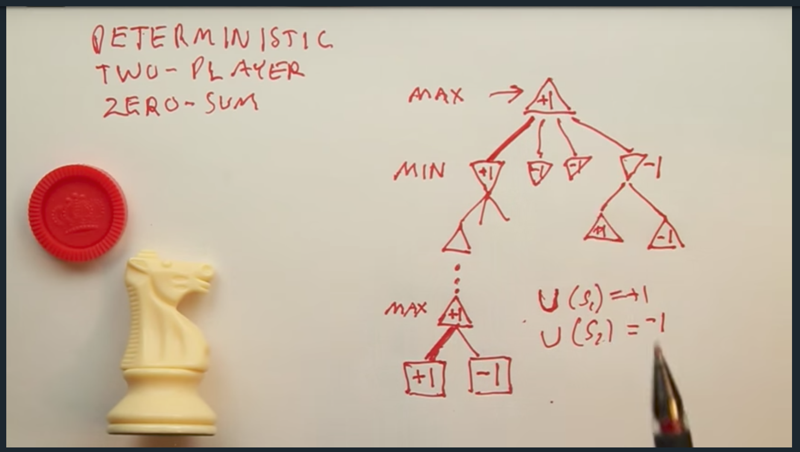 DETERMINISTIC
TWO-PLAYER
ZERO-SUM
MAX → +1
MIN +1 -1 -1 -1
+1 -1
MAX +1
+1 -1
U(S₁)=+1
U(S₂)=-1